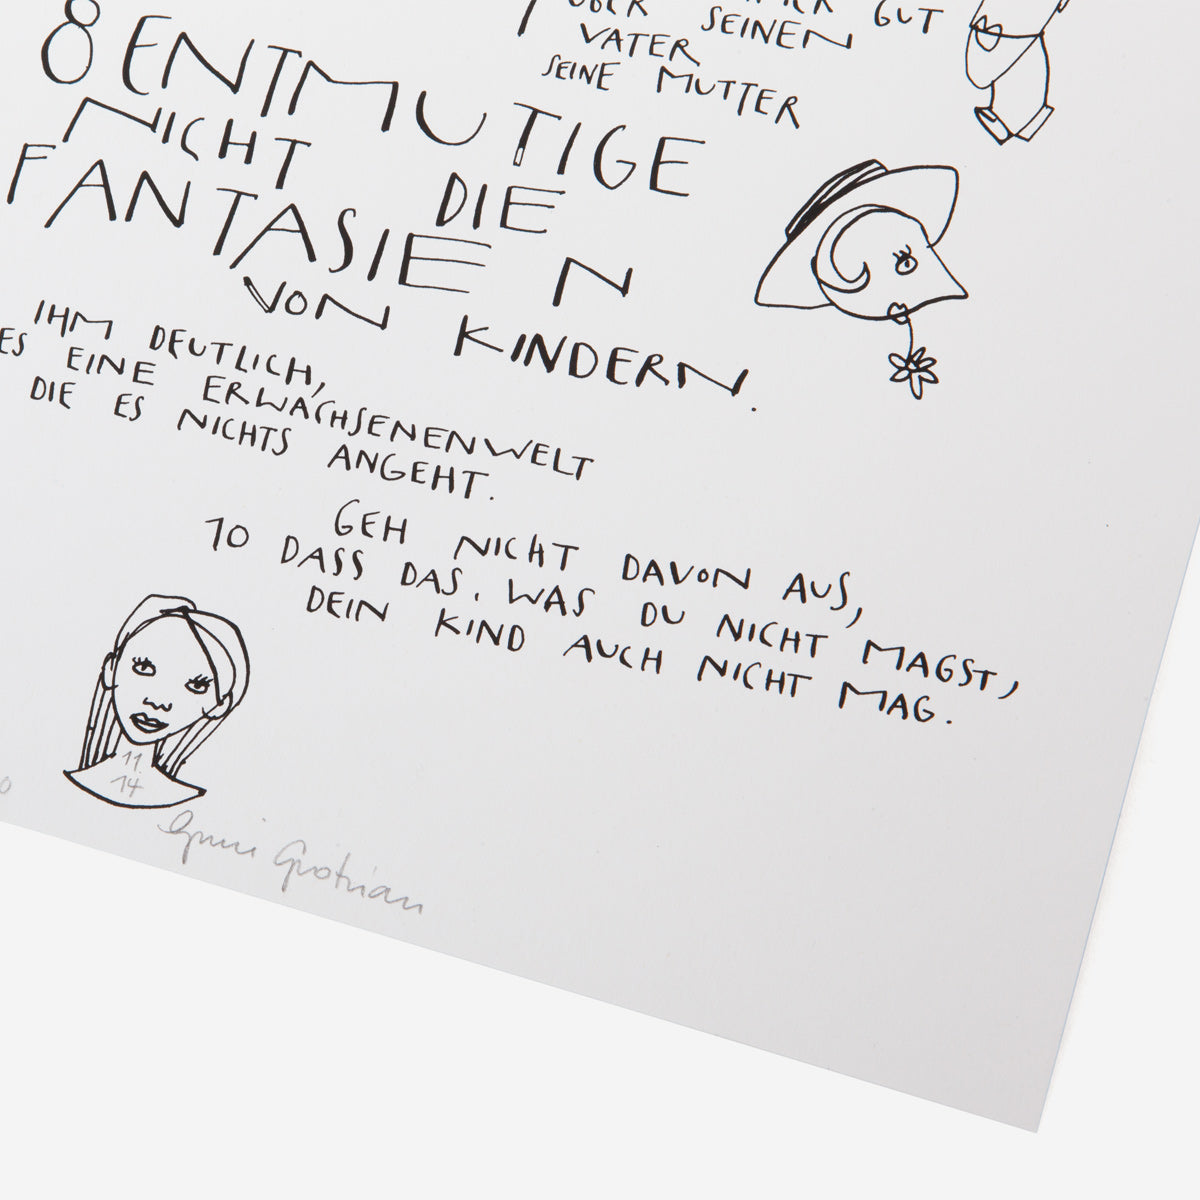 GUT
ÜBER SEINEN
VATER
SEINE MUTTER
8 ENTMUTIGE
NICHT DIE
FANTASIEN
VON KINDERN.
IHM DEUTLICH,
ES EINE ERWACHSENENWELT
DIE ES NICHTS ANGEHT.
GEH NICHT DAVON AUS,
10 DASS DAS, WAS DU NICHT MAGST,
DEIN KIND AUCH NICHT MAG.
11.
14
Grotrian